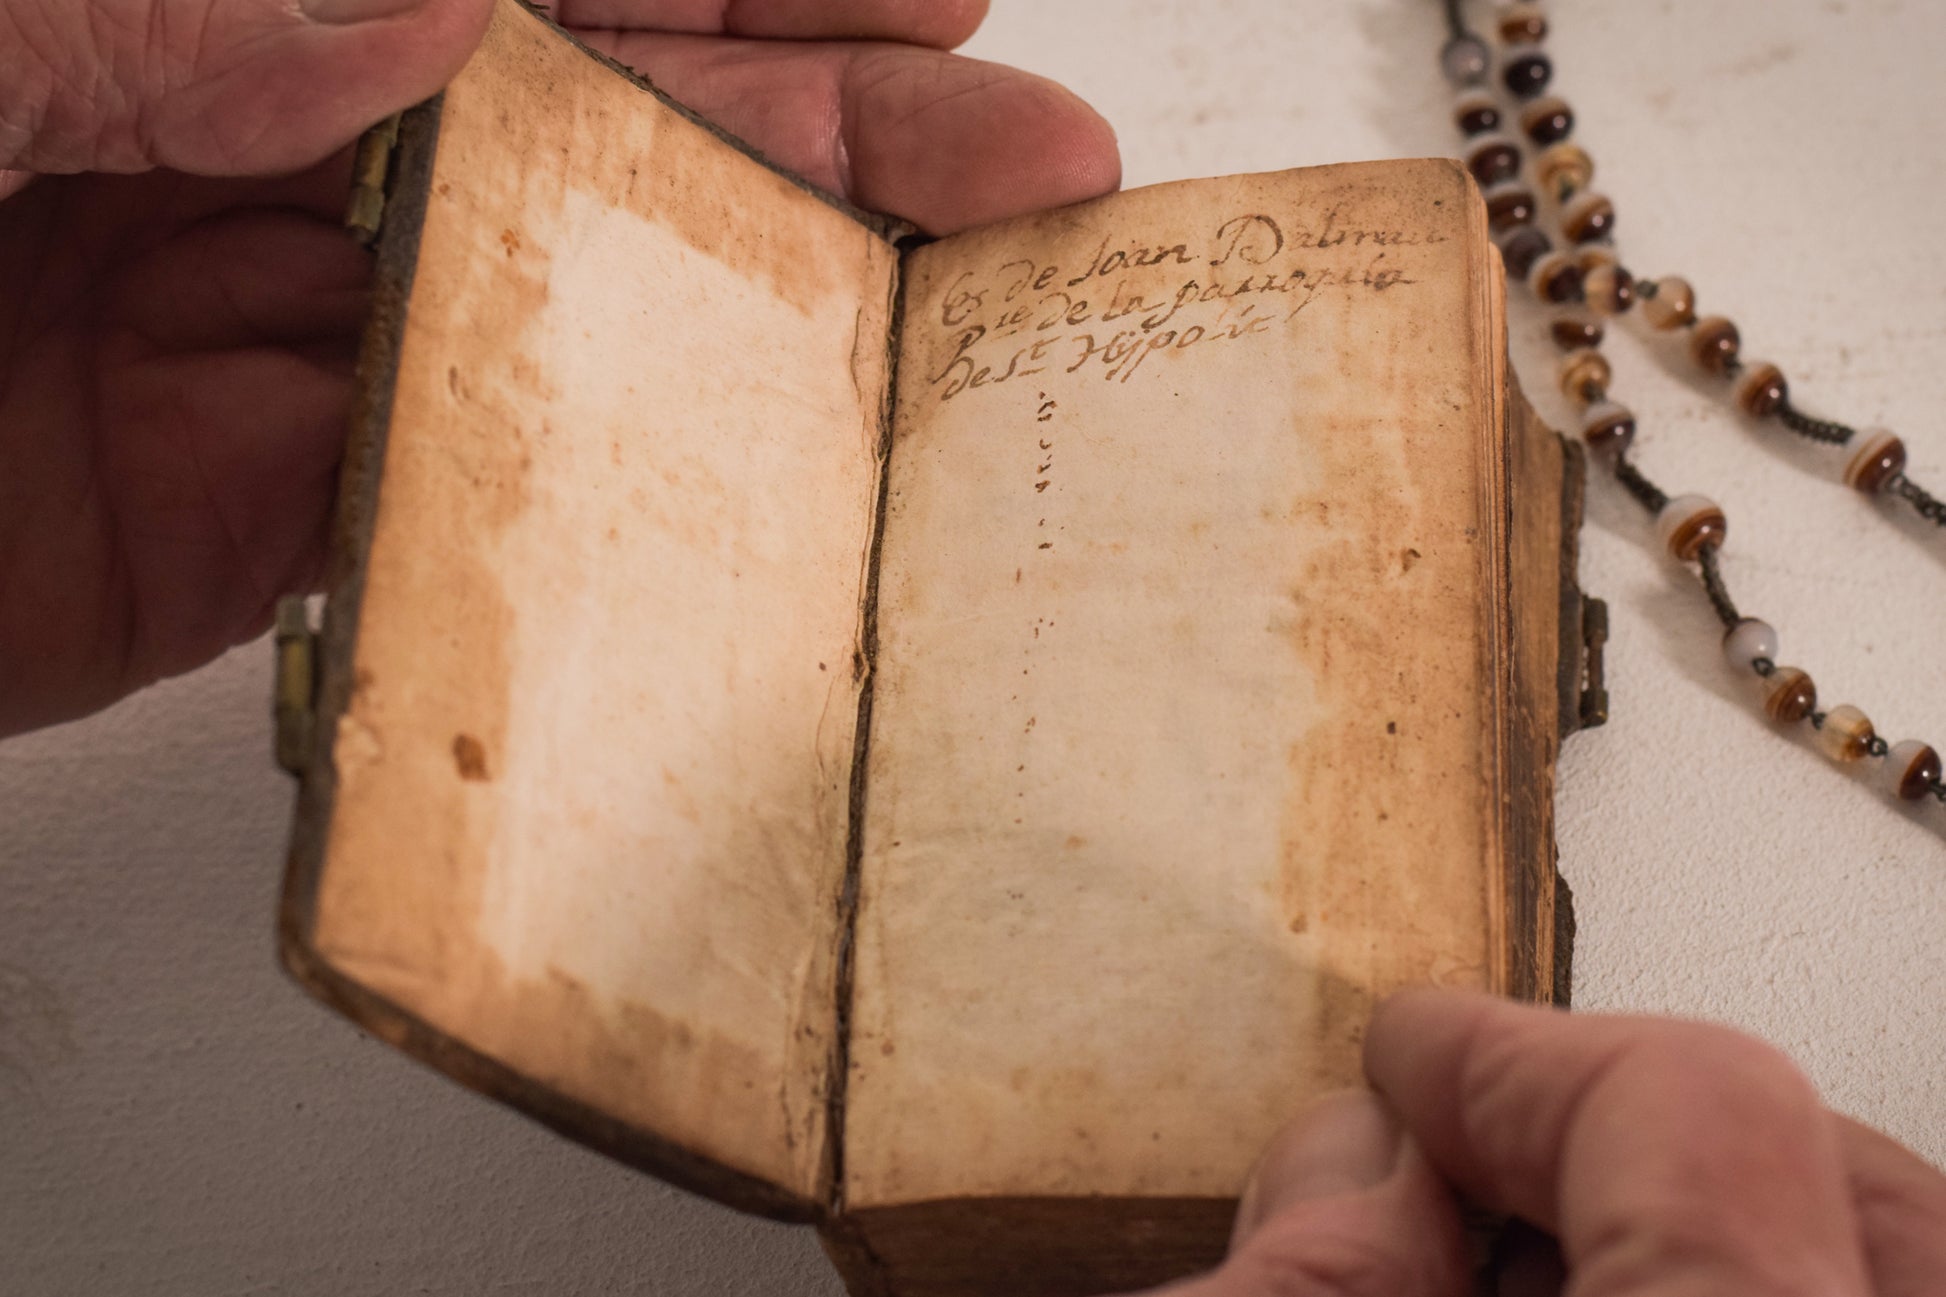 Es de Joan Dalmau
P.re de la parroquia
de S.t Hÿpolit